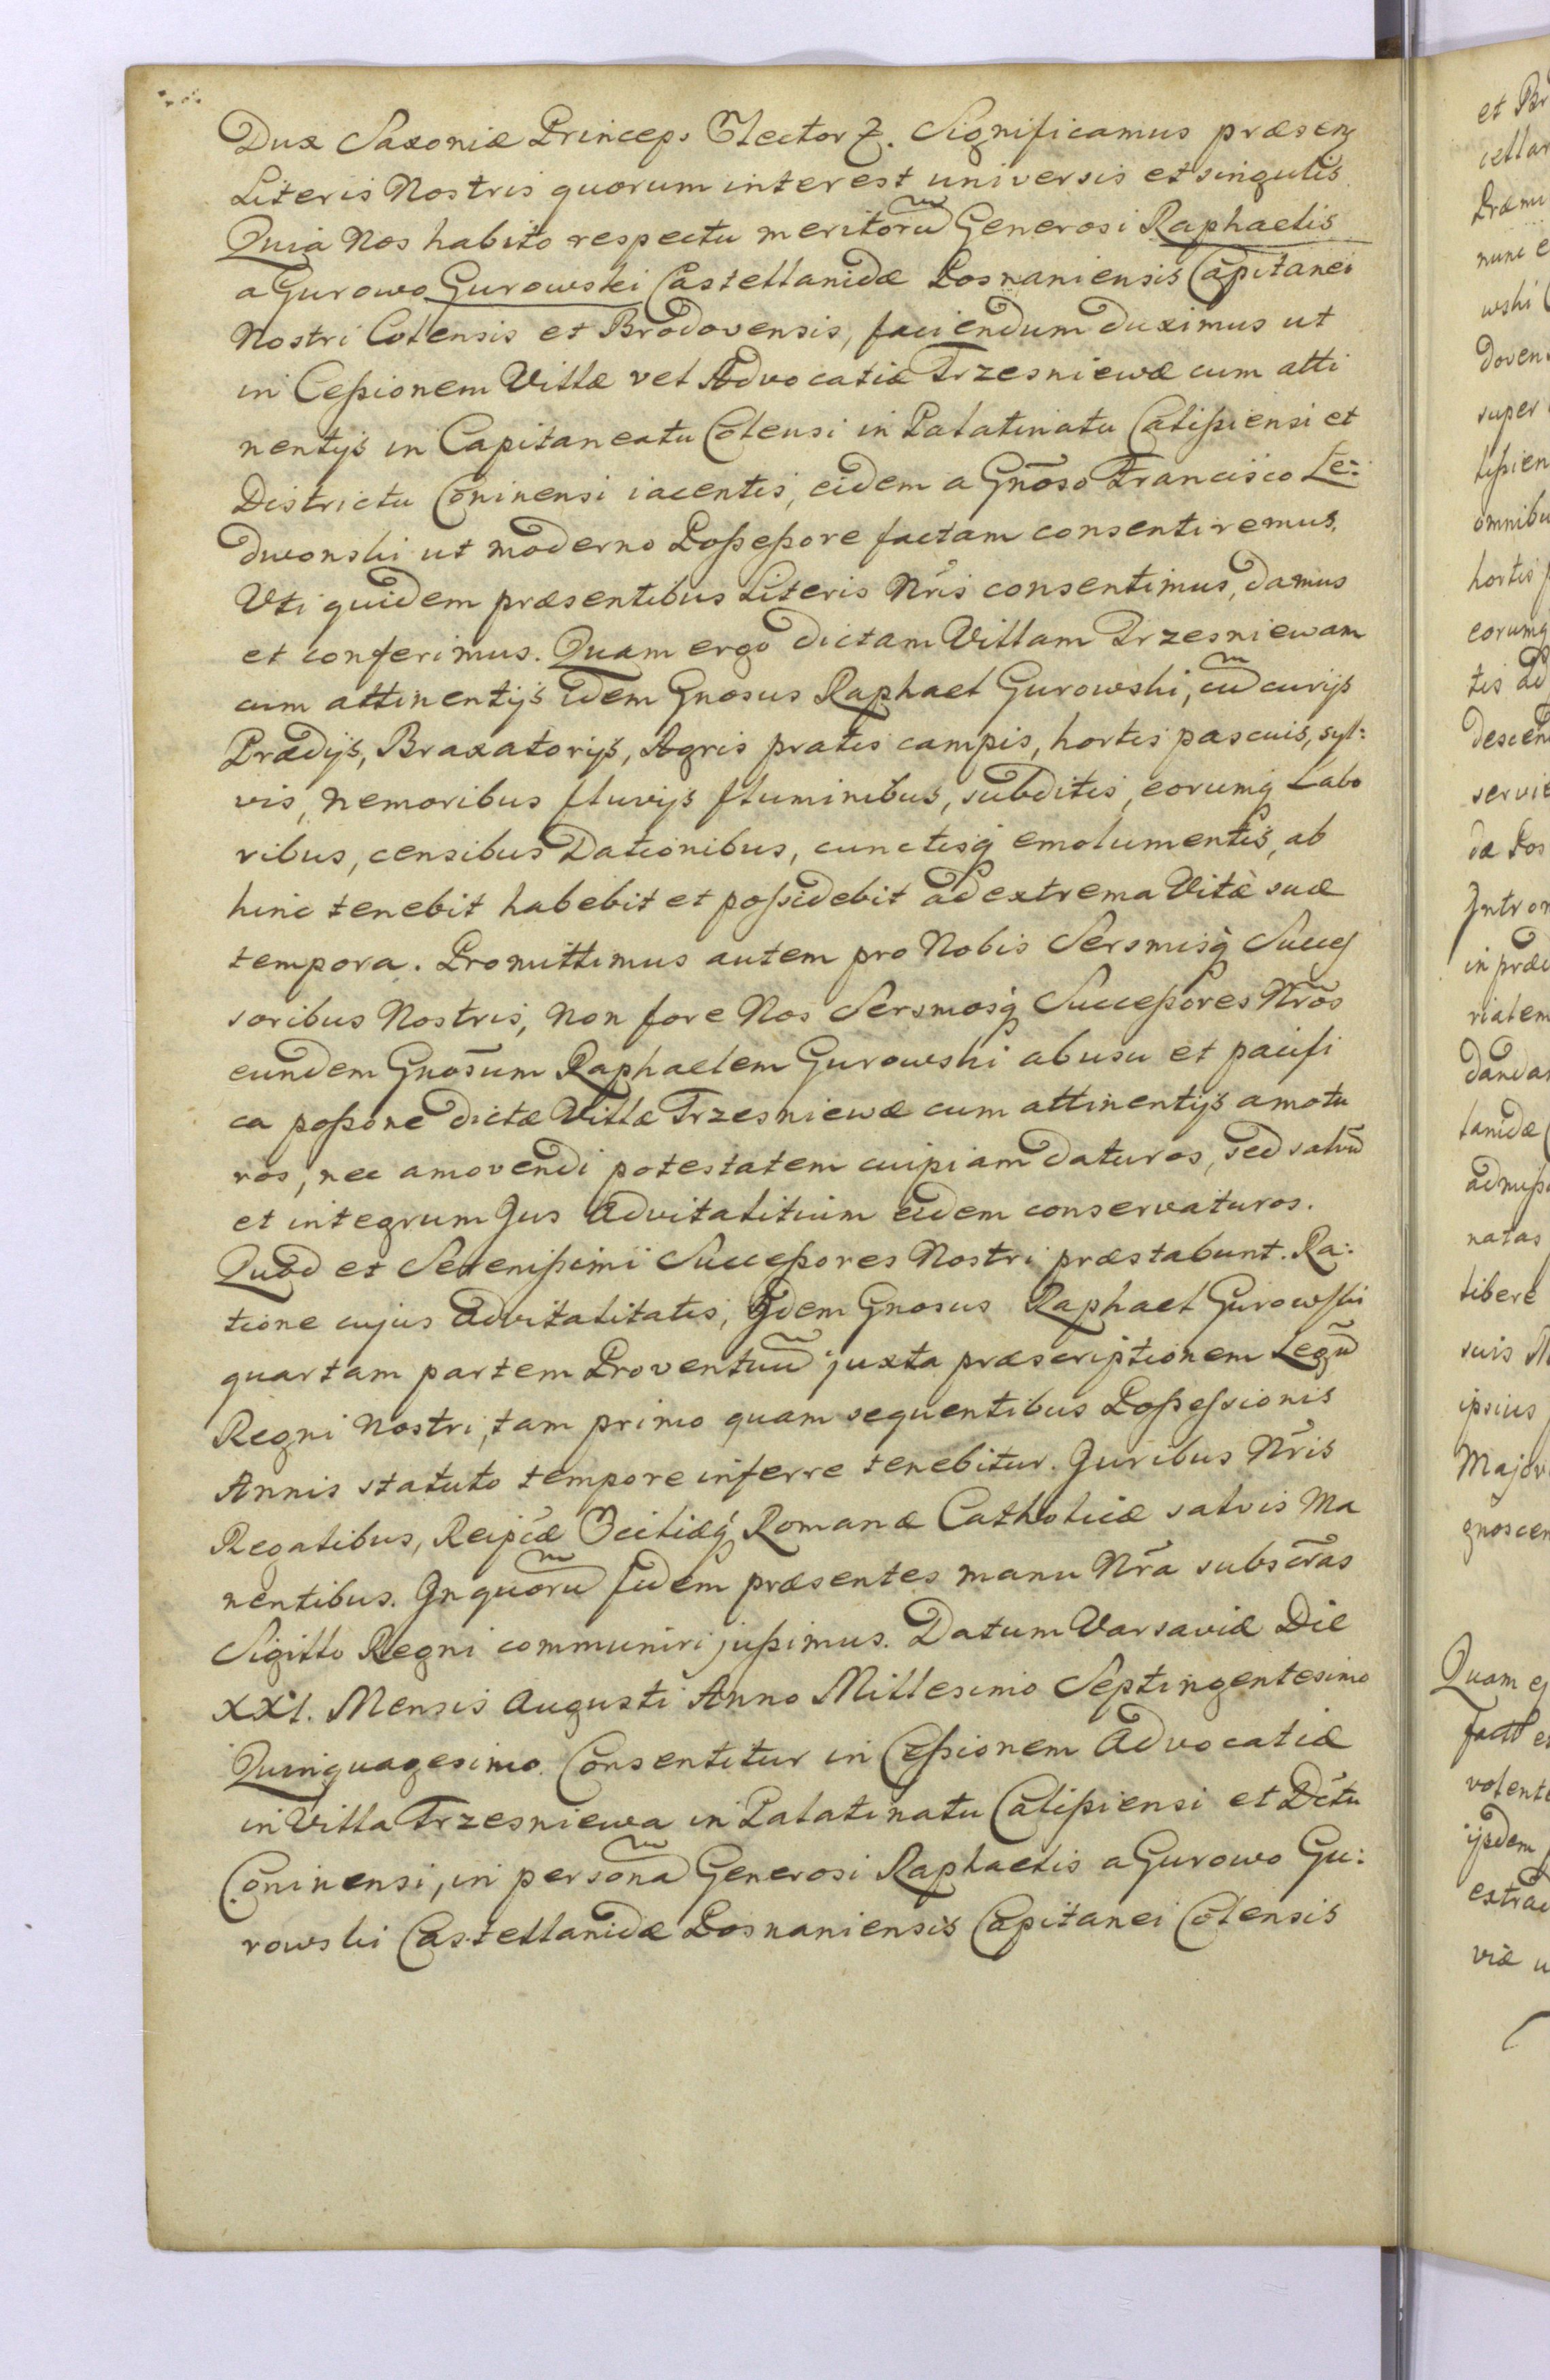 Dux Saxoniæ Princeps Elector Z. Significamus præsenz
Literis Nostris quorum interest universis et singulis
Quia Nos habito respectu meritorũ Generosi Raphaelis
a Gurowo Gurowski Castellanidæ Posnaniensis Capitanei
Nostri Colensis et Brodovensis, faciendum duximus ut
in Ceßionem Villæ vel Advocatiæ Trzesniewæ cum atti
nentijs in Capitaneatu Colensi in Palatinatu Calißiensi et
Districtu Coninensi iacentis, eidem a Gnõso Francisco Le:
dwonski ut moderno Poßeßore factam consentiremus.
Uti quidem præsentibus Literis Nr̃is consentimus, damus
et conferimus. Quam ergo dictam Villam Trzesniewam
cum attinentijs idem Gnosus Raphael Gurowski, cũ curijs
Prædijs, Braxatorijs, Agris pratis campis, hortis pascuis, syl:
vis, nemoribus fluvijs fluminibus, subditis, eorumq́ Labo
ribus, censibus Dationibus, cunctisq́ emolumentis, ab
hinc tenebit habebit et poßidebit ad extrema Vitæ suæ
tempora. Promittimus autem pro Nobis Sersmisq́ Succes
soribus Nostris, non fore Nos Sersmosq́ Succeßores Nr̃os
eundem Gnõsum Raphaelem Gurowski ab usu et pacifi
ca poßone dictæ Villæ Trzesniewæ cum attinentijs amotu
ros, nec amovendi potestatem cuipiam daturos, sed salvũ
et integrum Jus Advitalitium eidem conservaturos.
Quod et Serenißimi Succeßores Nostri præstabunt. Ra:
tione cujus Advitalitatis, Idem Gnosus Raphael Gurowski
quartam partem Proventuũ juxta præscriptionem Legũ
Regni Nostri, tam primo quam sequentibus Poßeßionis
Annis statuto tempore inferre tenebitur. Juribus Nr̃is
Regalibus, Reipcæ Eccliæq́ Romanæ Catholicæ salvis ma
nentibus. In quorũ fidem præsentes manu Nr̃a subscr̃as
Sigillo Regni communiri jußimus. Datum Varsaviæ Die
XXI. Mensis Augusti Anno Millesimo Septingentesimo
Quinquagesimo. Consentitur in Ceßionem Advocatiæ
in Villa Trzesniewa in Palatinatu Calißiensi et Dctu
Coninensi, in personã Generosi Raphaelis a Gurowo Gu:
rowski Castellanidæ Posnaniensis Capitanei Colensis